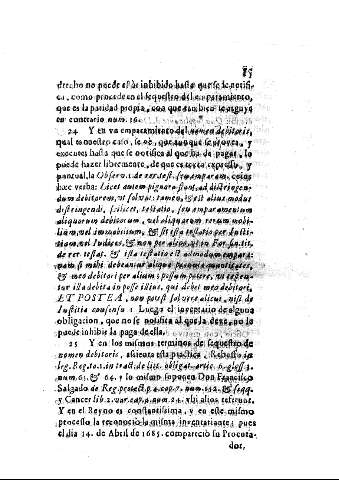 85
derecho no puede ser inhibido hasta que se le notifi-
ca, como procede en el sequestro del emparamiento,
que es la paridad propia, con que tambien se arguye
en contrario num. 16.
24 Y en un emparamiento del nomen debitoris,
qual es nuestro caso, se vè, que aunque se provea, y
execute; hasta que se notifica al que ha de pagar, lo
puede hazer libremente, de que es texto expresso, y
puntual, la Observ. de rer. test. seu emparam. cuius
hæc verba: Licet autem pignora sunt, ad distringen-
dum debitorem, ut solvat: tamen, & est alius modus
distringendi, scilicet, testatio, seu emparamentum
aliquorum debitorum, vel aliquarum rerum mobi-
lium, vel immobilium, & sit ista testatio per Iusti-
tiam, vel Iudices, & non per alios, ut in For. fin. tit.
de rer. testat. & ista testatio est ad modum empara:
nam si mihi debeantur aliquæ pecuniæ quantitates,
& meo debitori per alium
ista debita in posse illius, qui debet meo debitori,
ET POSTEA, non potest solvere alicui, nisi de
Iustitia consensu: Luego el inventario de alguna
obligacion, que no se notifica al que la deve, no lo
puede inhibir la paga de ella.
25 Y en los mismos terminos de sequestro de
nomen debitoris, assienta esta practica, Rebuffo in
leg. Reg. to. 1. in tract. de lit. obligat. artic. 6. gloss. 3.
num. 63. & 64. y lo mismo suponen Don Francisco
Salgado de Reg. protect. 4. p. cap. 7. num. 112. & seqq.
y Cancer lib. 2. var. cap. 2. num. 24. ubi alios referunt.
Y en el Reyno es constantissima, y en este mismo
processo la reconociò la misma inventariante; pues
el dia 14. de Abril de 1685. compareciò su Procura-
dor,